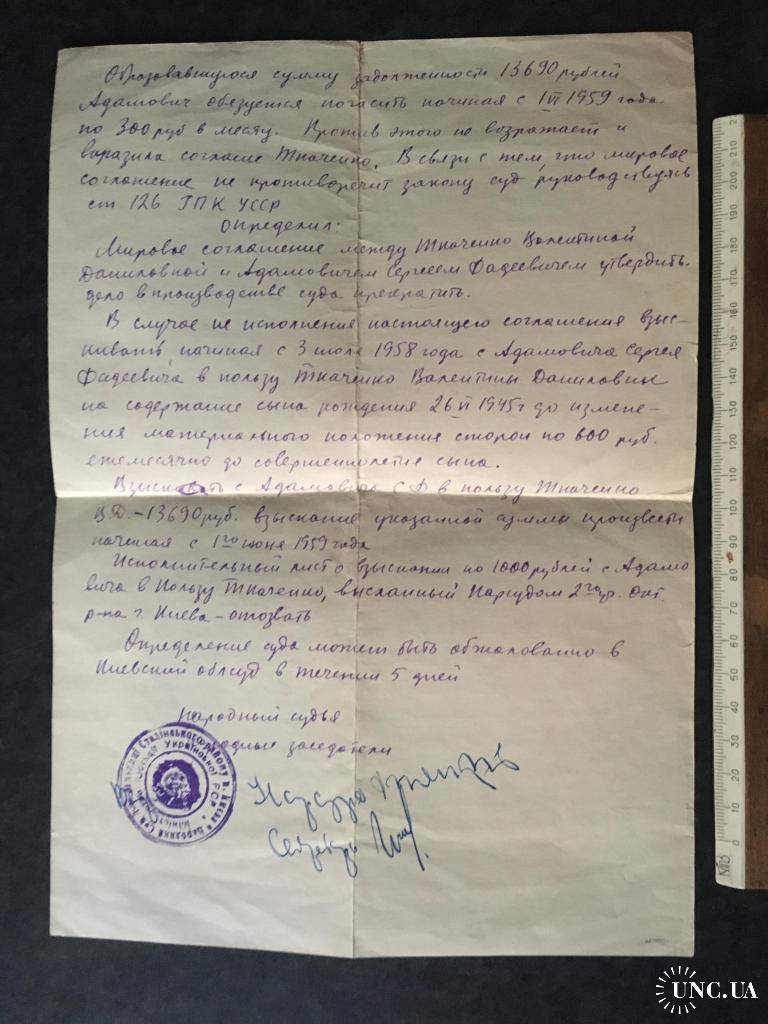 Образовавшуюся сумму задолженности 13690 рублей
Адамович обезуется погасить начиная с 1 VI 1959 года
по 300 руб в месяц. Против этого не возражает и
выразила согласие Ткаченко. В связи с тем, что мировое
соглашение не противоречит закону суд руководствуясь
ст 126 ГПК УССР
Определил:
Мировое соглашение между Ткаченко Валентиной
Даниловной и Адамовичем Сергеем Фадеевичем утвердить.
дело в производстве суда прекратить.
В случае не исполнения настоящего соглашения взыс-
кивать начиная с 3 июля 1958 года с Адамовича Сергея
Фадеевича в пользу Ткаченко Валентины Даниловны
на содержание сына рождения 26 VI 1945 г до измене-
ния материального положения сторон по 600 руб.
ежемесячно до совершеннолетия сына.
Взыскать с Адамовича С Ф в пользу Ткаченко
В.Д. - 13690 руб. взыскание указанной суммы произвести
начиная с 1го июня 1959 года
Исполнительный лист о взыскании по 1000 рублей с Адамо
вича в пользу Ткаченко, высланный Нарсудом 2го уч. Окт.
р-на г. Киева - отозвать
Определение суда может быть обжаловано в
Киевский облсуд в течении 5 дней
народный судья
народные заседатели
Народний Суд Сталінського району м. Києва
Української РСР
Нарсудья
Секретарь
0 10 20 30 40 50 60 70 80 90 100 110 120 130 140 150 160 170 180 190 200 210
UNC.UA